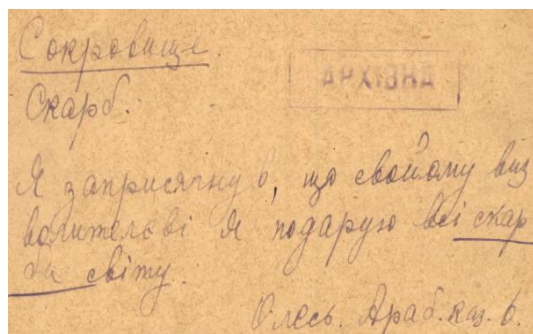 Сокровище.
АРХІВНА
Скарб.
Я заприсягнув, що свойому виз
волителеві я подарую всі скар
би світу.
Олесь. Араб. каз. 6.